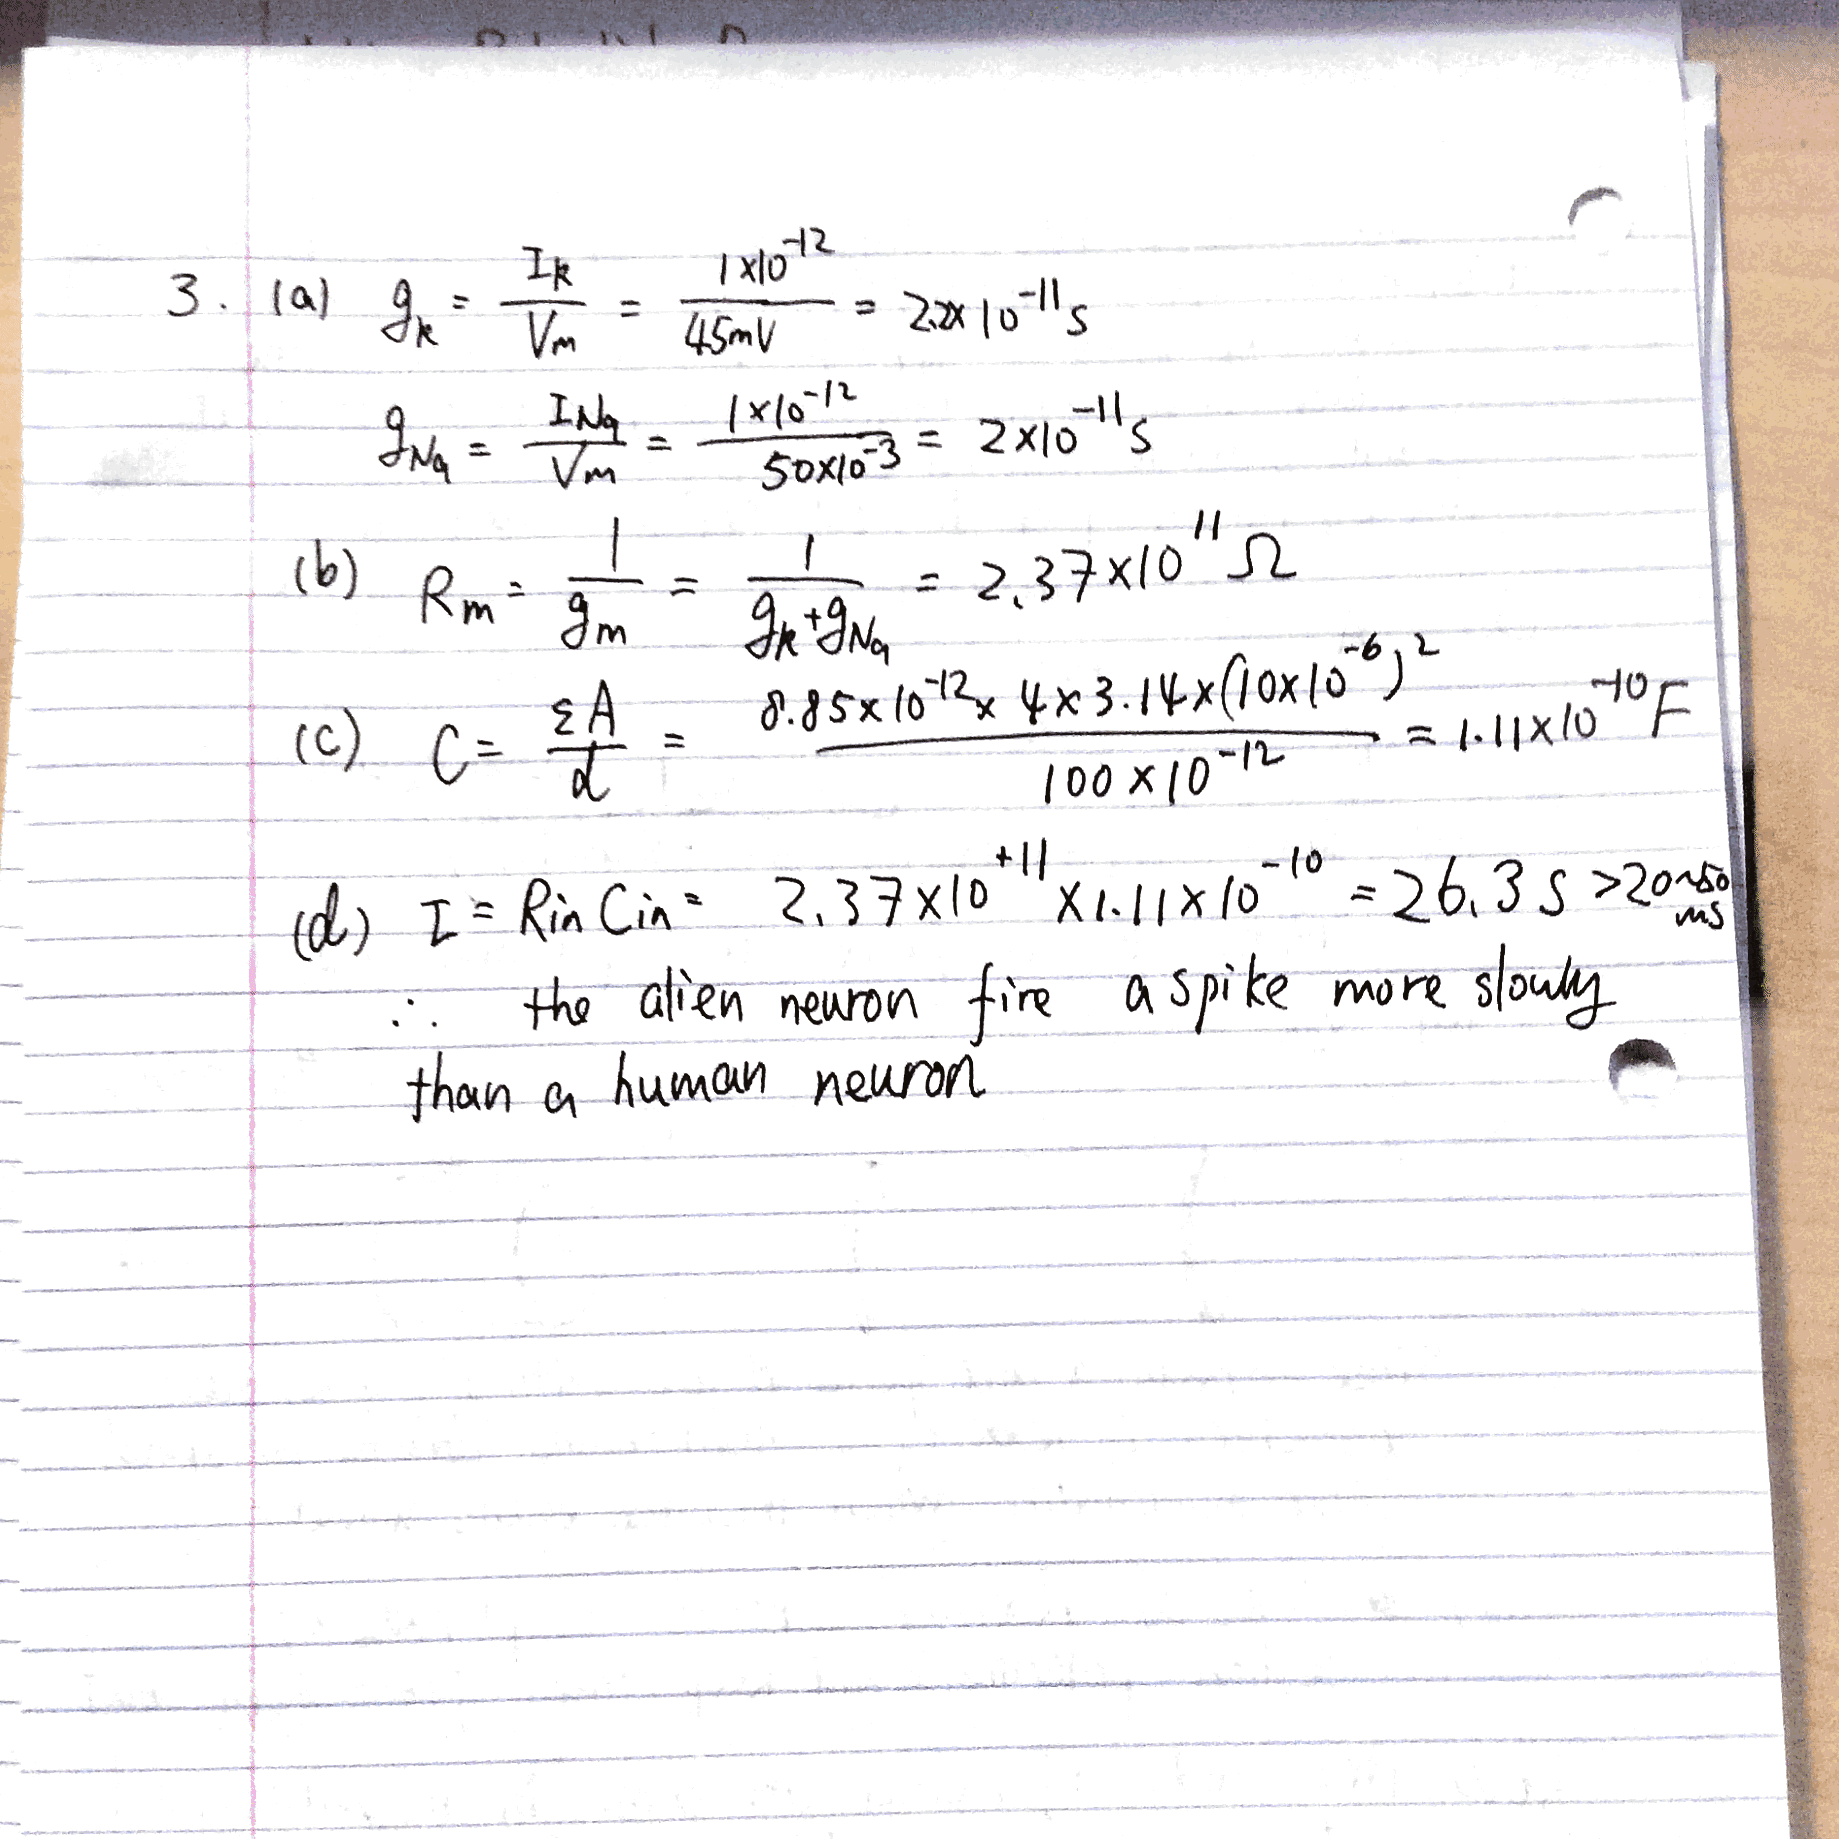 3. (a) g_k = I_k / V_m = 1×10^-12 / 45mV = 2.2×10^-11 S
g_Na = I_Na / V_m = 1×10^-12 / 50×10^-3 = 2×10^-11 S
(b) R_m = 1 / g_m = 1 / (g_k + g_Na) = 2.37×10^11 Ω
(c) C = εA / d = 8.85×10^-12 × 4×3.14×(10×10^-6)^2 / 100×10^-12 = 1.11×10^-10 F
(d) I = Rin Cin = 2.37×10^+11 ×1.11×10^-10 = 26.3 S >20~50 ms
∴ the alien neuron fire a spike more slowly
than a human neuron